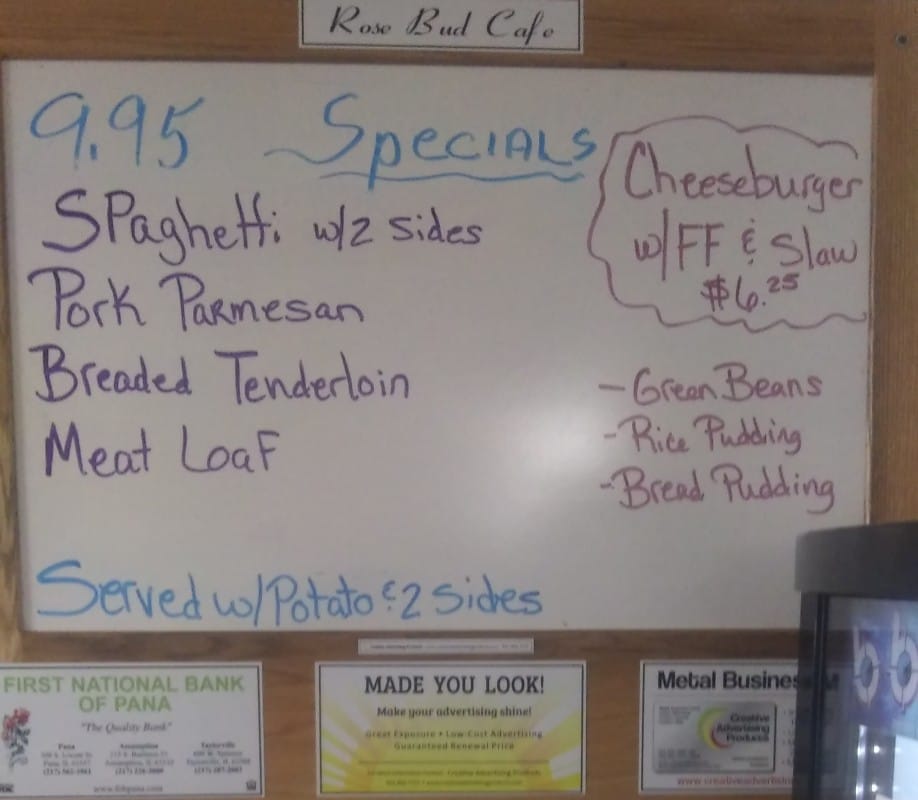 Rose Bud Cafe
9.95 Specials
Spaghetti w/2 sides
Pork Parmesan
Breaded Tenderloin
Meat Loaf
Served w/Potato & 2 Sides
Cheeseburger
w/FF & Slaw
$6.25
- Green Beans
- Rice Pudding
- Bread Pudding
FIRST NATIONAL BANK
OF PANA
"The Quality Bank"
Pana
Assumption
Taylorville
MADE YOU LOOK!
Make your advertising shine!
Great Exposure • Low-Cost Advertising
Guaranteed Renewal Price
Metal Busine
Creative
Advertising
Products